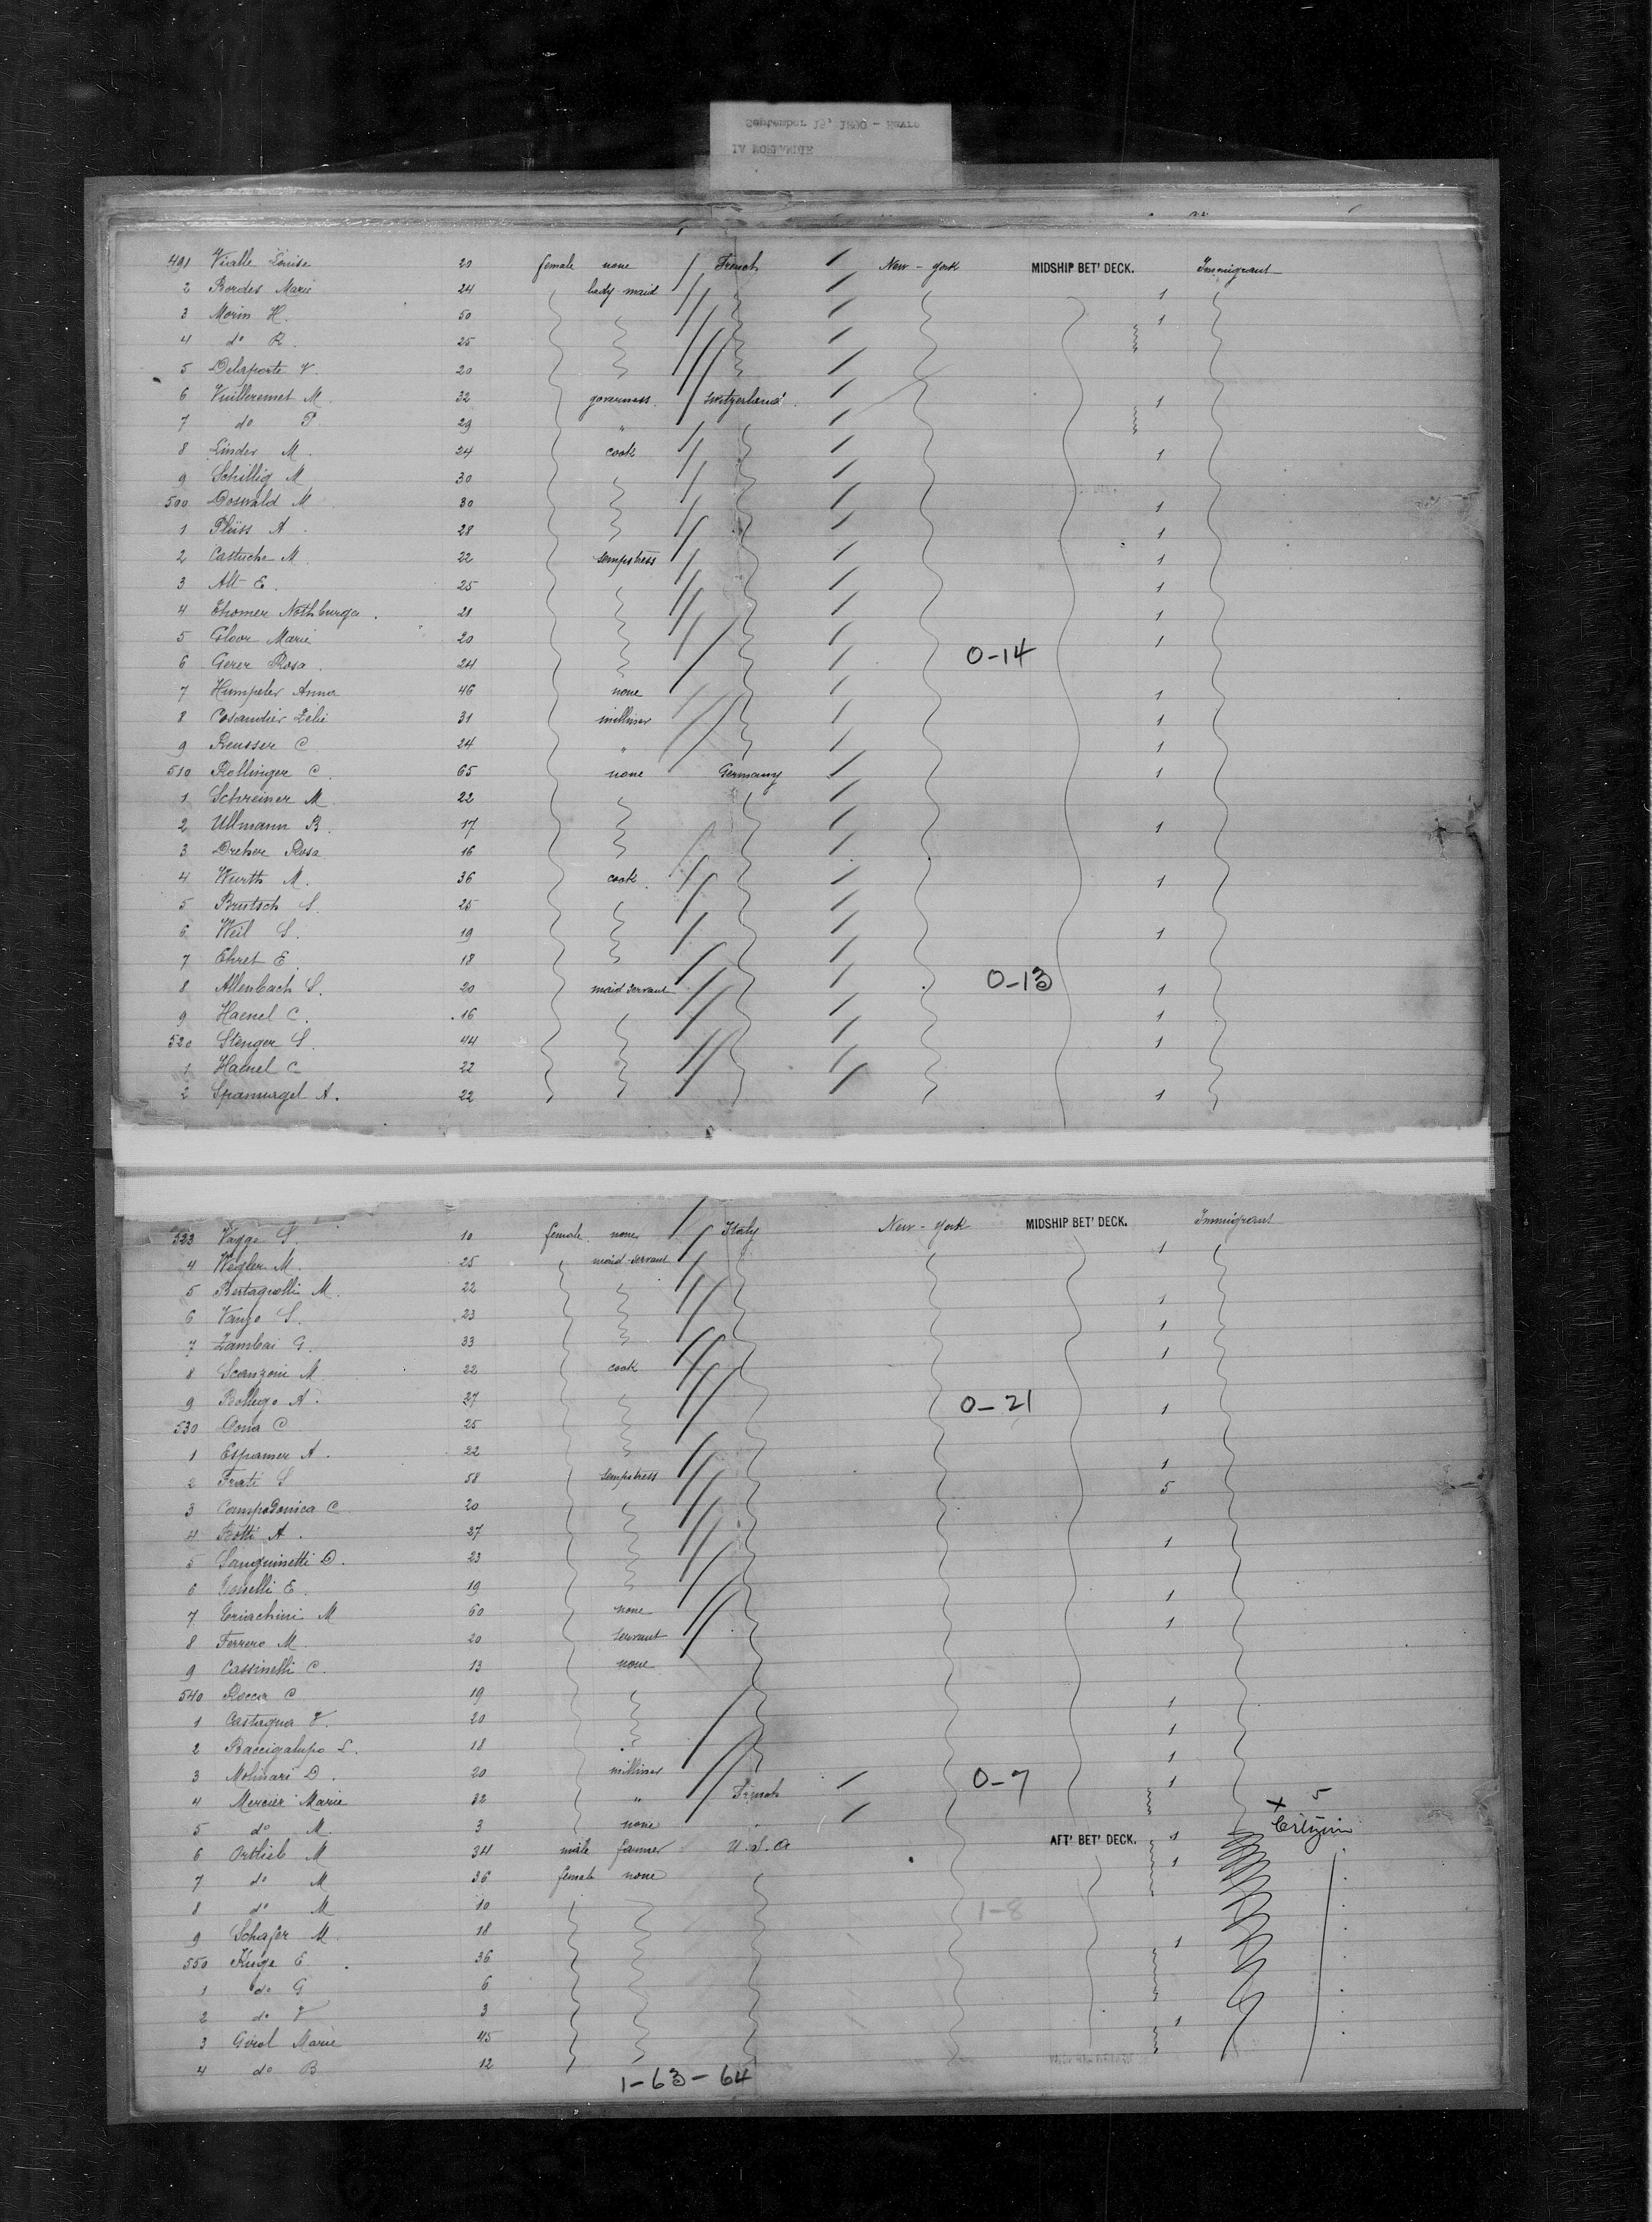 September 15, 1890 - Havre
LA NORMANDIE
491 Vialle Louise 20 female none French New-York MIDSHIP BET' DECK. Immigrant
2 Bordes Marie 24 lady maid 1
3 Morin H. 50 1
4 do R. 25
5 Delaporte V. 20
6 Vuilleremet M. 32 governess Switzerland 1
7 do P. 29 "
8 Linder M. 24 cook 1
9 Schillig M. 30
500 Doswald M. 30 1
1 Plüss A. 28 1
2 Castuche M. 22 sempstress 1
3 Alt E. 25 1
4 Thomer Nothburga. 21 1
5 Gloor Marie 20 1
6 Gerer Rosa 24 0-14
7 Humpeler Anna 46 none 1
8 Cosandier Zélie 31 milliner 1
9 Reusser C. 24 " 1
510 Rollinger C. 65 none Germany 1
1 Schreiner M. 22
2 Ullmann B. 17 1
3 Dreher Rosa 16
4 Wurth M. 36 cook 1
5 Brutsch S. 25
6 Weil S. 19 1
7 Ehret E. 18
8 Allenbach S. 20 maid servant 0-13 1
9 Haenel C. 16 1
520 Stenger S. 44 1
1 Haenel C. 22
2 Spannagel A. 22 1
523 Vagge S. 10 female none Italy New-York MIDSHIP BET' DECK. 1 Immigrant
4 Wegler M. 25 maid-servant
5 Bertagnolli M. 22 1
6 Vanzo S. 23 1
7 Zambai G. 33 1
8 Scanzoni M. 22 cook
9 Bollego A. 27 0-21 1
530 Dona C. 25
1 Espamer A. 22 1
2 Frati S. 58 sempstress 5
3 Campodonica C. 20
4 Botti A. 27 1
5 Sanguinetti D. 23
6 Tonelli E. 19 1
7 Criachini M. 60 none 1
8 Ferrero M. 20 servant
9 Cassinelli C. 13 none
540 Rocca C. 19 1
1 Castagna V. 20 1
2 Baccigalupo L. 18 1
3 Molinari D. 20 milliner 0-7 1
4 Mercier Marie 32 " French
5 do M. 3 none
6 Ortlieb M. 34 male farmer U.S.A AFT' BET' DECK. 1 x 5 Citizen
7 do M. 36 female none 1
8 do M. 10 1-8
9 Schafer M. 18 1
550 Kuge E. 36
1 do G. 6
2 do V. 3 1
3 Girol Marie 45
4 do B 12
1-63-64